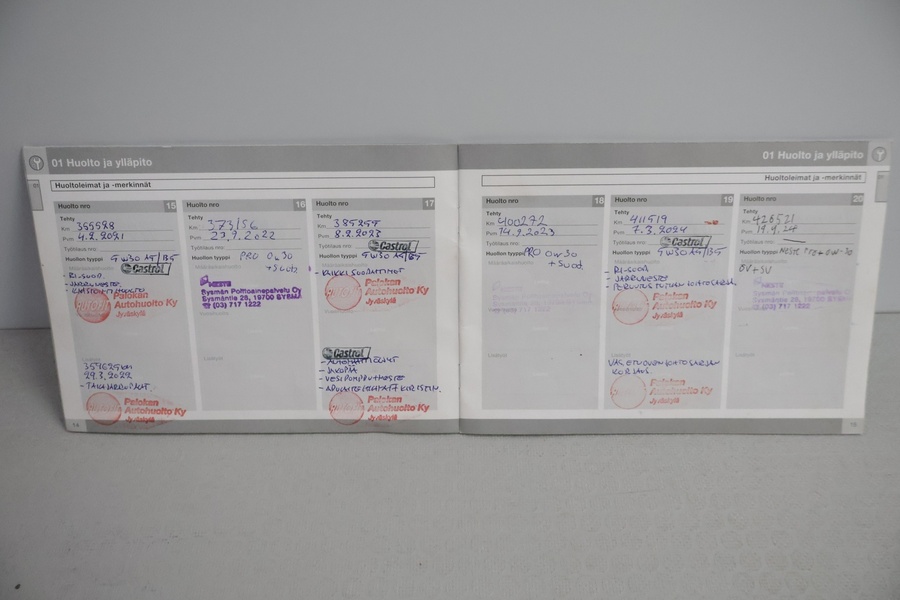 01 Huolto ja ylläpito
Huoltoleimat ja -merkinnät
Huolto nro 15
Tehty
Km
Pvm 4.2.2021
Työtilaus nro:
Huollon tyyppi 5W30 A5/B5
Castrol
- RI-SUOD.
- JARRUNESTE
Palokan
Autohuolto Ky
Jyväskylä
Lisätyö
29.3.2022
- TAKAJARRUPALAT.
Palokan
Autohuolto Ky
Jyväskylä
14
Huolto nro 16
Tehty
Km 373156
Pvm 22.9.2022
Työtilaus nro:
Huollon tyyppi PRO 0W30
+ Suod
Määräaikaishuolto
NESTE
Sysmän Polttoainepalvelu Oy
Sysmäntie 28, 19700 SYSMÄ
(03) 717 1222
Lisätyö
Huolto nro 17
Tehty
Km
Pvm 8.2.2023
Työtilaus nro:
Castrol
Huollon tyyppi 5W30 A5/B5
- KAIKKI SUODATTIMET
Palokan
Autohuolto Ky
Jyväskylä
Castrol
- JAKOPÄÄ
- VESIPUMPPU + NESTE
Palokan
Autohuolto Ky
Jyväskylä
01 Huolto ja ylläpito
Huoltoleimat ja -merkinnät
Huolto nro 18
Tehty
Km 400272
Pvm 14.9.2023
Työtilaus nro:
Huollon tyyppi PRO 0W30
+ Suod
Lisätyö
Huolto nro 19
Tehty
Km 411519
Pvm 7.3.2024
Työtilaus nro:
Castrol
Huollon tyyppi 5W30 A5/B5
- RI-SUOD.
- JARRUNESTE
Palokan
Autohuolto Ky
Jyväskylä
KORJAUS.
Palokan
Autohuolto Ky
Jyväskylä
Huolto nro 20
Tehty
Km 426531
Pvm 19.9.24
Työtilaus nro:
Huollon tyyppi Neste Pro+ 0W-30
ÖV+SV
NESTE
Sysmän Polttoainepalvelu Oy
Sysmäntie 28, 19700 SYSMÄ
(03) 717 1222
Lisätyö
15